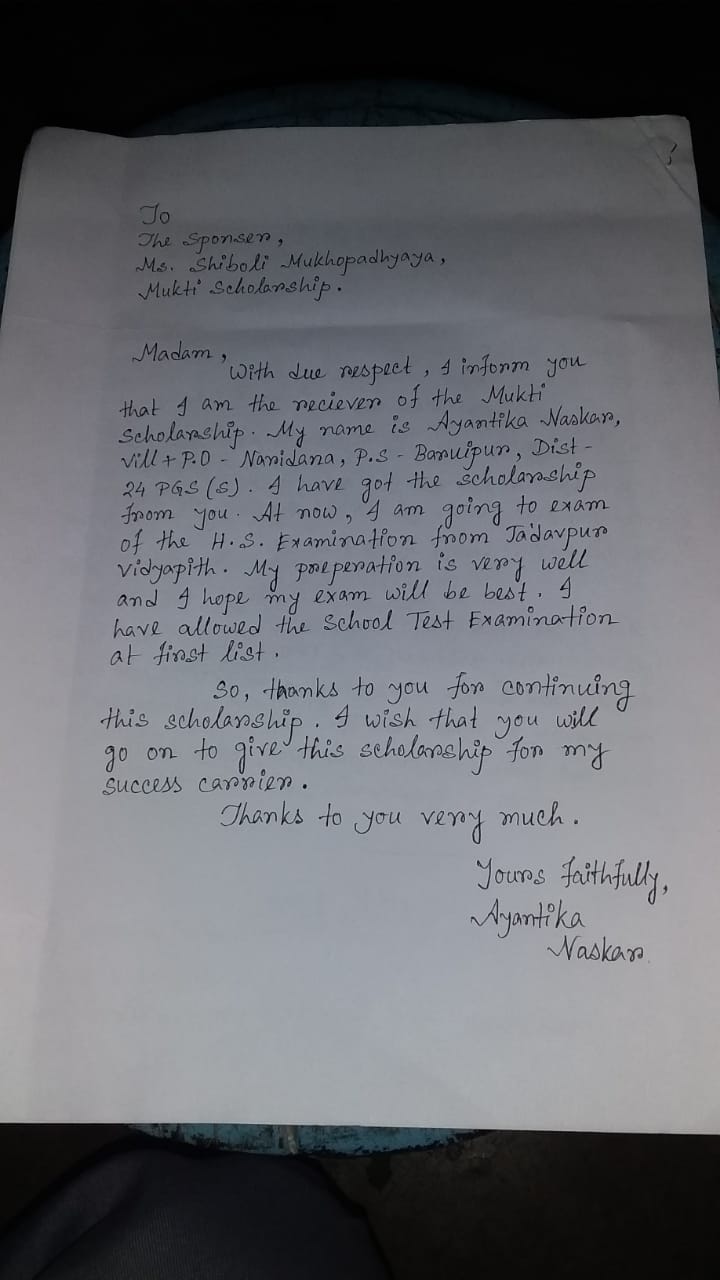 To
The Sponser,
Ms. Shiboli Mukhopadhyaya,
Mukti Scholarship.
Madam,
With due respect, I inform you
that I am the reciever of the Mukti
Scholarship. My name is Ayantika Naskar,
Vill + P.O - Naridana, P.S - Baruipur, Dist -
24 PGS (S). I have got the scholarship
from you. At now, I am going to exam
of the H.S. Examination from Jadavpur
Vidyapith. My preperation is very well
and I hope my exam will be best. I
have allowed the School Test Examination
at first list.
So, thanks to you for continuing
this scholarship. I wish that you will
go on to give this scholarship for my
success carrier.
Thanks to you very much.
Yours faithfully,
Ayantika
Naskar.